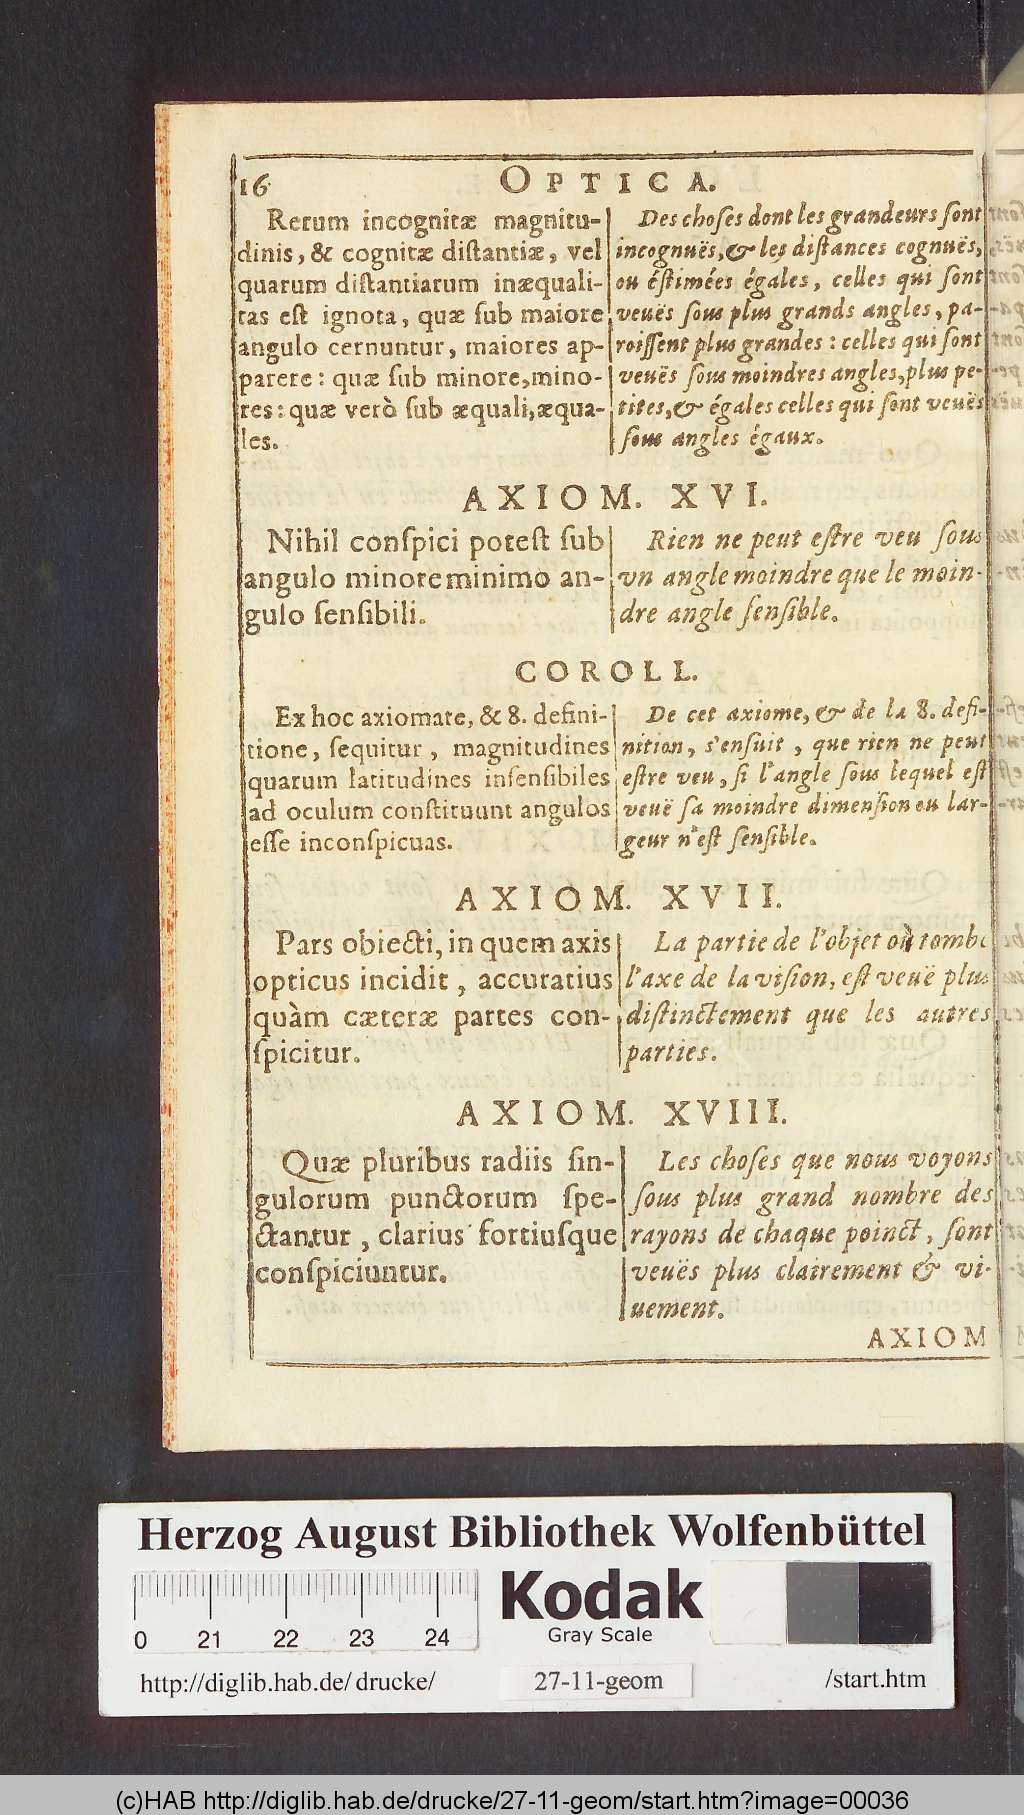 16 OPTICA.
Rerum incognitæ magnitu-
dinis, & cognitæ distantiæ, vel
quarum distantiarum inæquali-
tas est ignota, quæ sub maiore
angulo cernuntur, maiores ap-
parere: quæ sub minore, mino-
res: quæ verò sub æquali, æqua-
les.
Des choses dont les grandeurs sont
incognuës, & les distances cognuës,
ou éstimées égales, celles qui sont
veuës sous plus grands angles, pa-
roissent plus grandes: celles qui sont
veuës sous moindres angles, plus pe-
tites, & égales celles qui sont veuës
sous angles égaux.
AXIOM. XVI.
Nihil conspici potest sub
angulo minore minimo an-
gulo sensibili.
Rien ne peut estre veu sous
vn angle moindre que le moin-
dre angle sensible.
COROLL.
Ex hoc axiomate, & 8. defini-
tione, sequitur, magnitudines
quarum latitudines insensibiles
ad oculum constituunt angulos
esse inconspicuas.
De cet axiome, & de la 8. defi-
nition, s'ensuit, que rien ne peut
estre veu, si l'angle sous lequel est
veuë sa moindre dimension ou lar-
geur n'est sensible.
AXIOM. XVII.
Pars obiecti, in quem axis
opticus incidit, accuratius
quàm cæteræ partes con-
spicitur.
La partie de l'objet où tombe
l'axe de la vision, est veuë plus
distinctement que les autres
parties.
AXIOM. XVIII.
Quæ pluribus radiis sin-
gulorum punctorum spe-
ctantur, clarius fortiusque
conspiciuntur.
Les choses que nous voyons
sous plus grand nombre des
rayons de chaque poinct, sont
veuës plus clairement & vi-
uement.
AXIOM
Herzog August Bibliothek Wolfenbüttel
0 21 22 23 24
Kodak
Gray Scale
http://diglib.hab.de/drucke/ 27-11-geom /start.htm
(c)HAB http://diglib.hab.de/drucke/27-11-geom/start.htm?image=00036